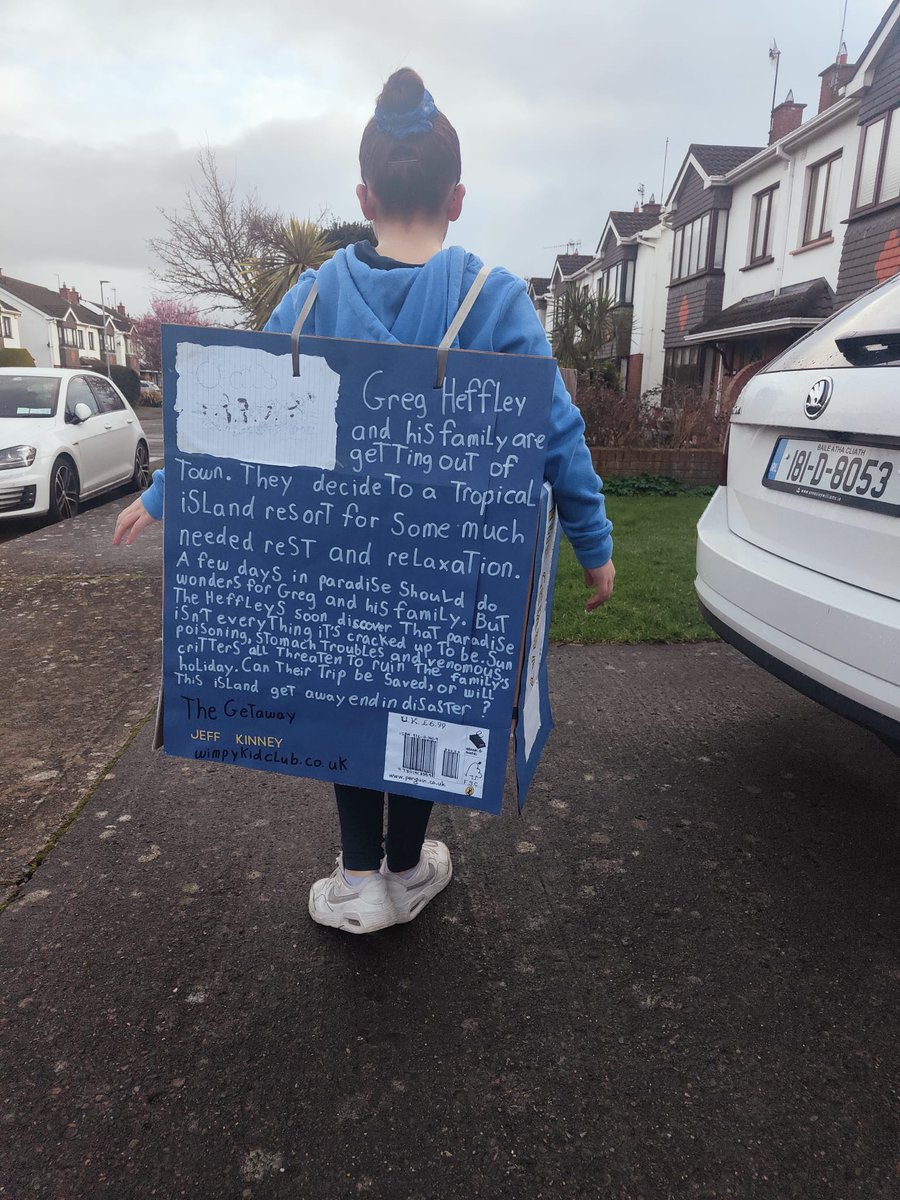 Greg Heffley
and his family are
getting out of
Town. They decide To a Tropical
island resort for Some much
needed resT and relaxaTion.
A few days in paradise Should do
wonders for Greg and his family. BuT
The Heffleys soon discover That paradise
isnT everything iTs cracked up To be. Sun
poisoning, stomach Troubles and venomous
criTTers all ThreaTen To ruin The family's
holiday. Can Their Trip be Saved, or will
This island get away end in disaster ?
The Getaway
JEFF KINNEY
wimpykidclub.co.uk
U.K. £6.99
www.penguin.co.uk
BAILE ÁTHA CLIATH
181-D-8053